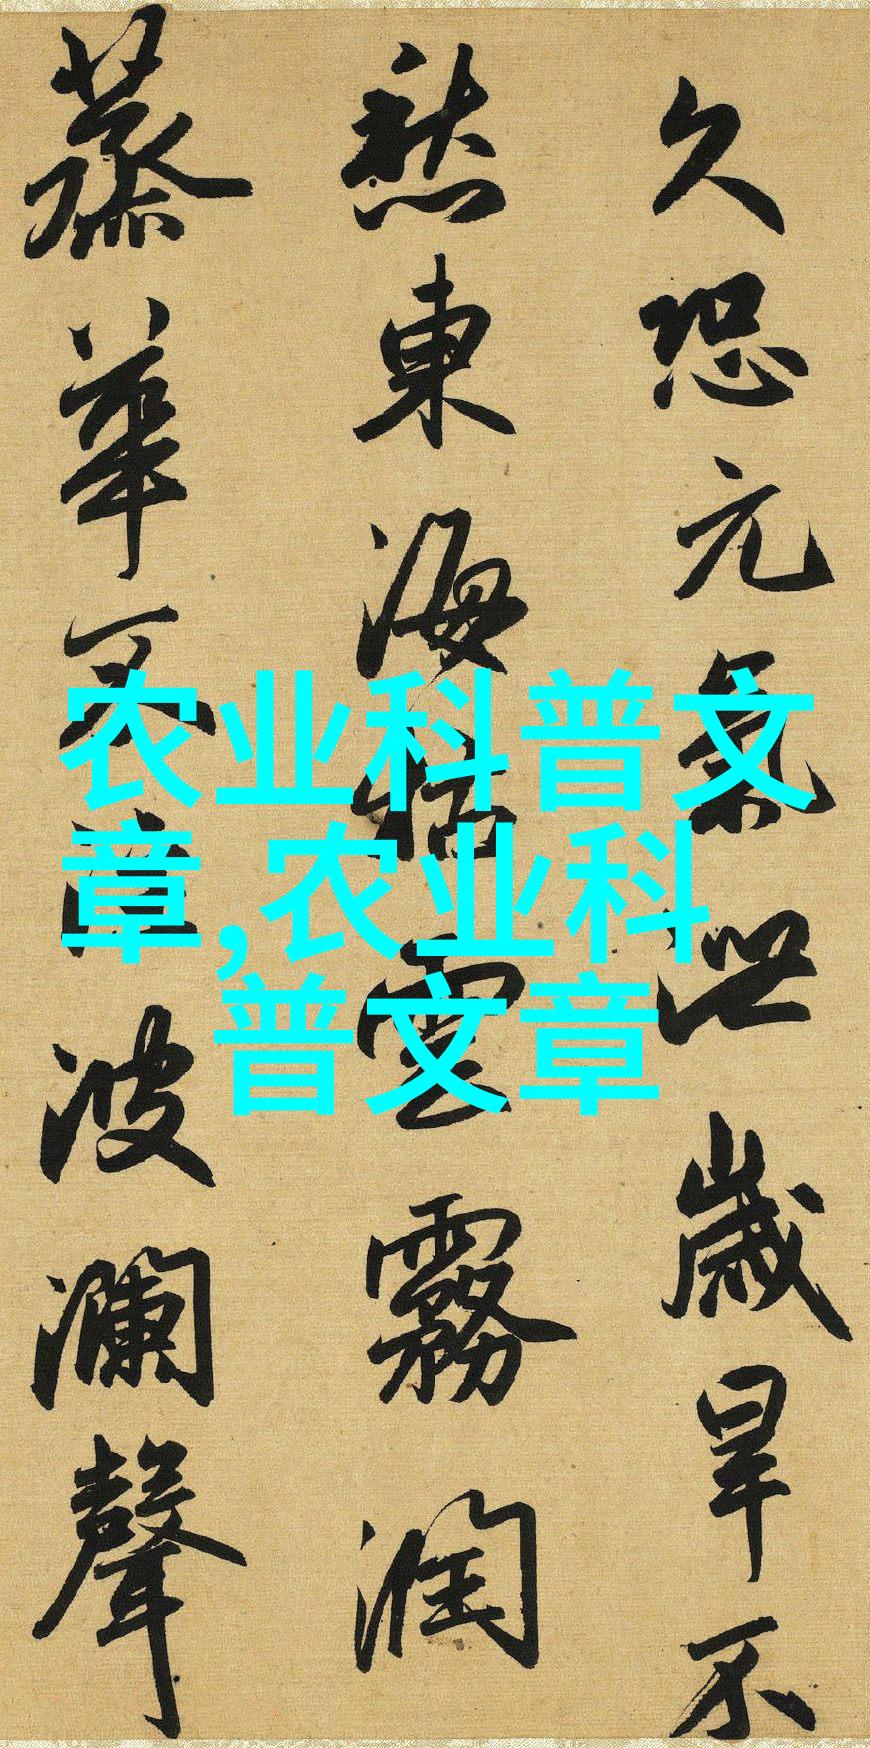 久恐元氣泄歲旱不
愁東海枯雲霧潤
蒸華不注波瀾聲
农业科普文
章,农业科
普文章